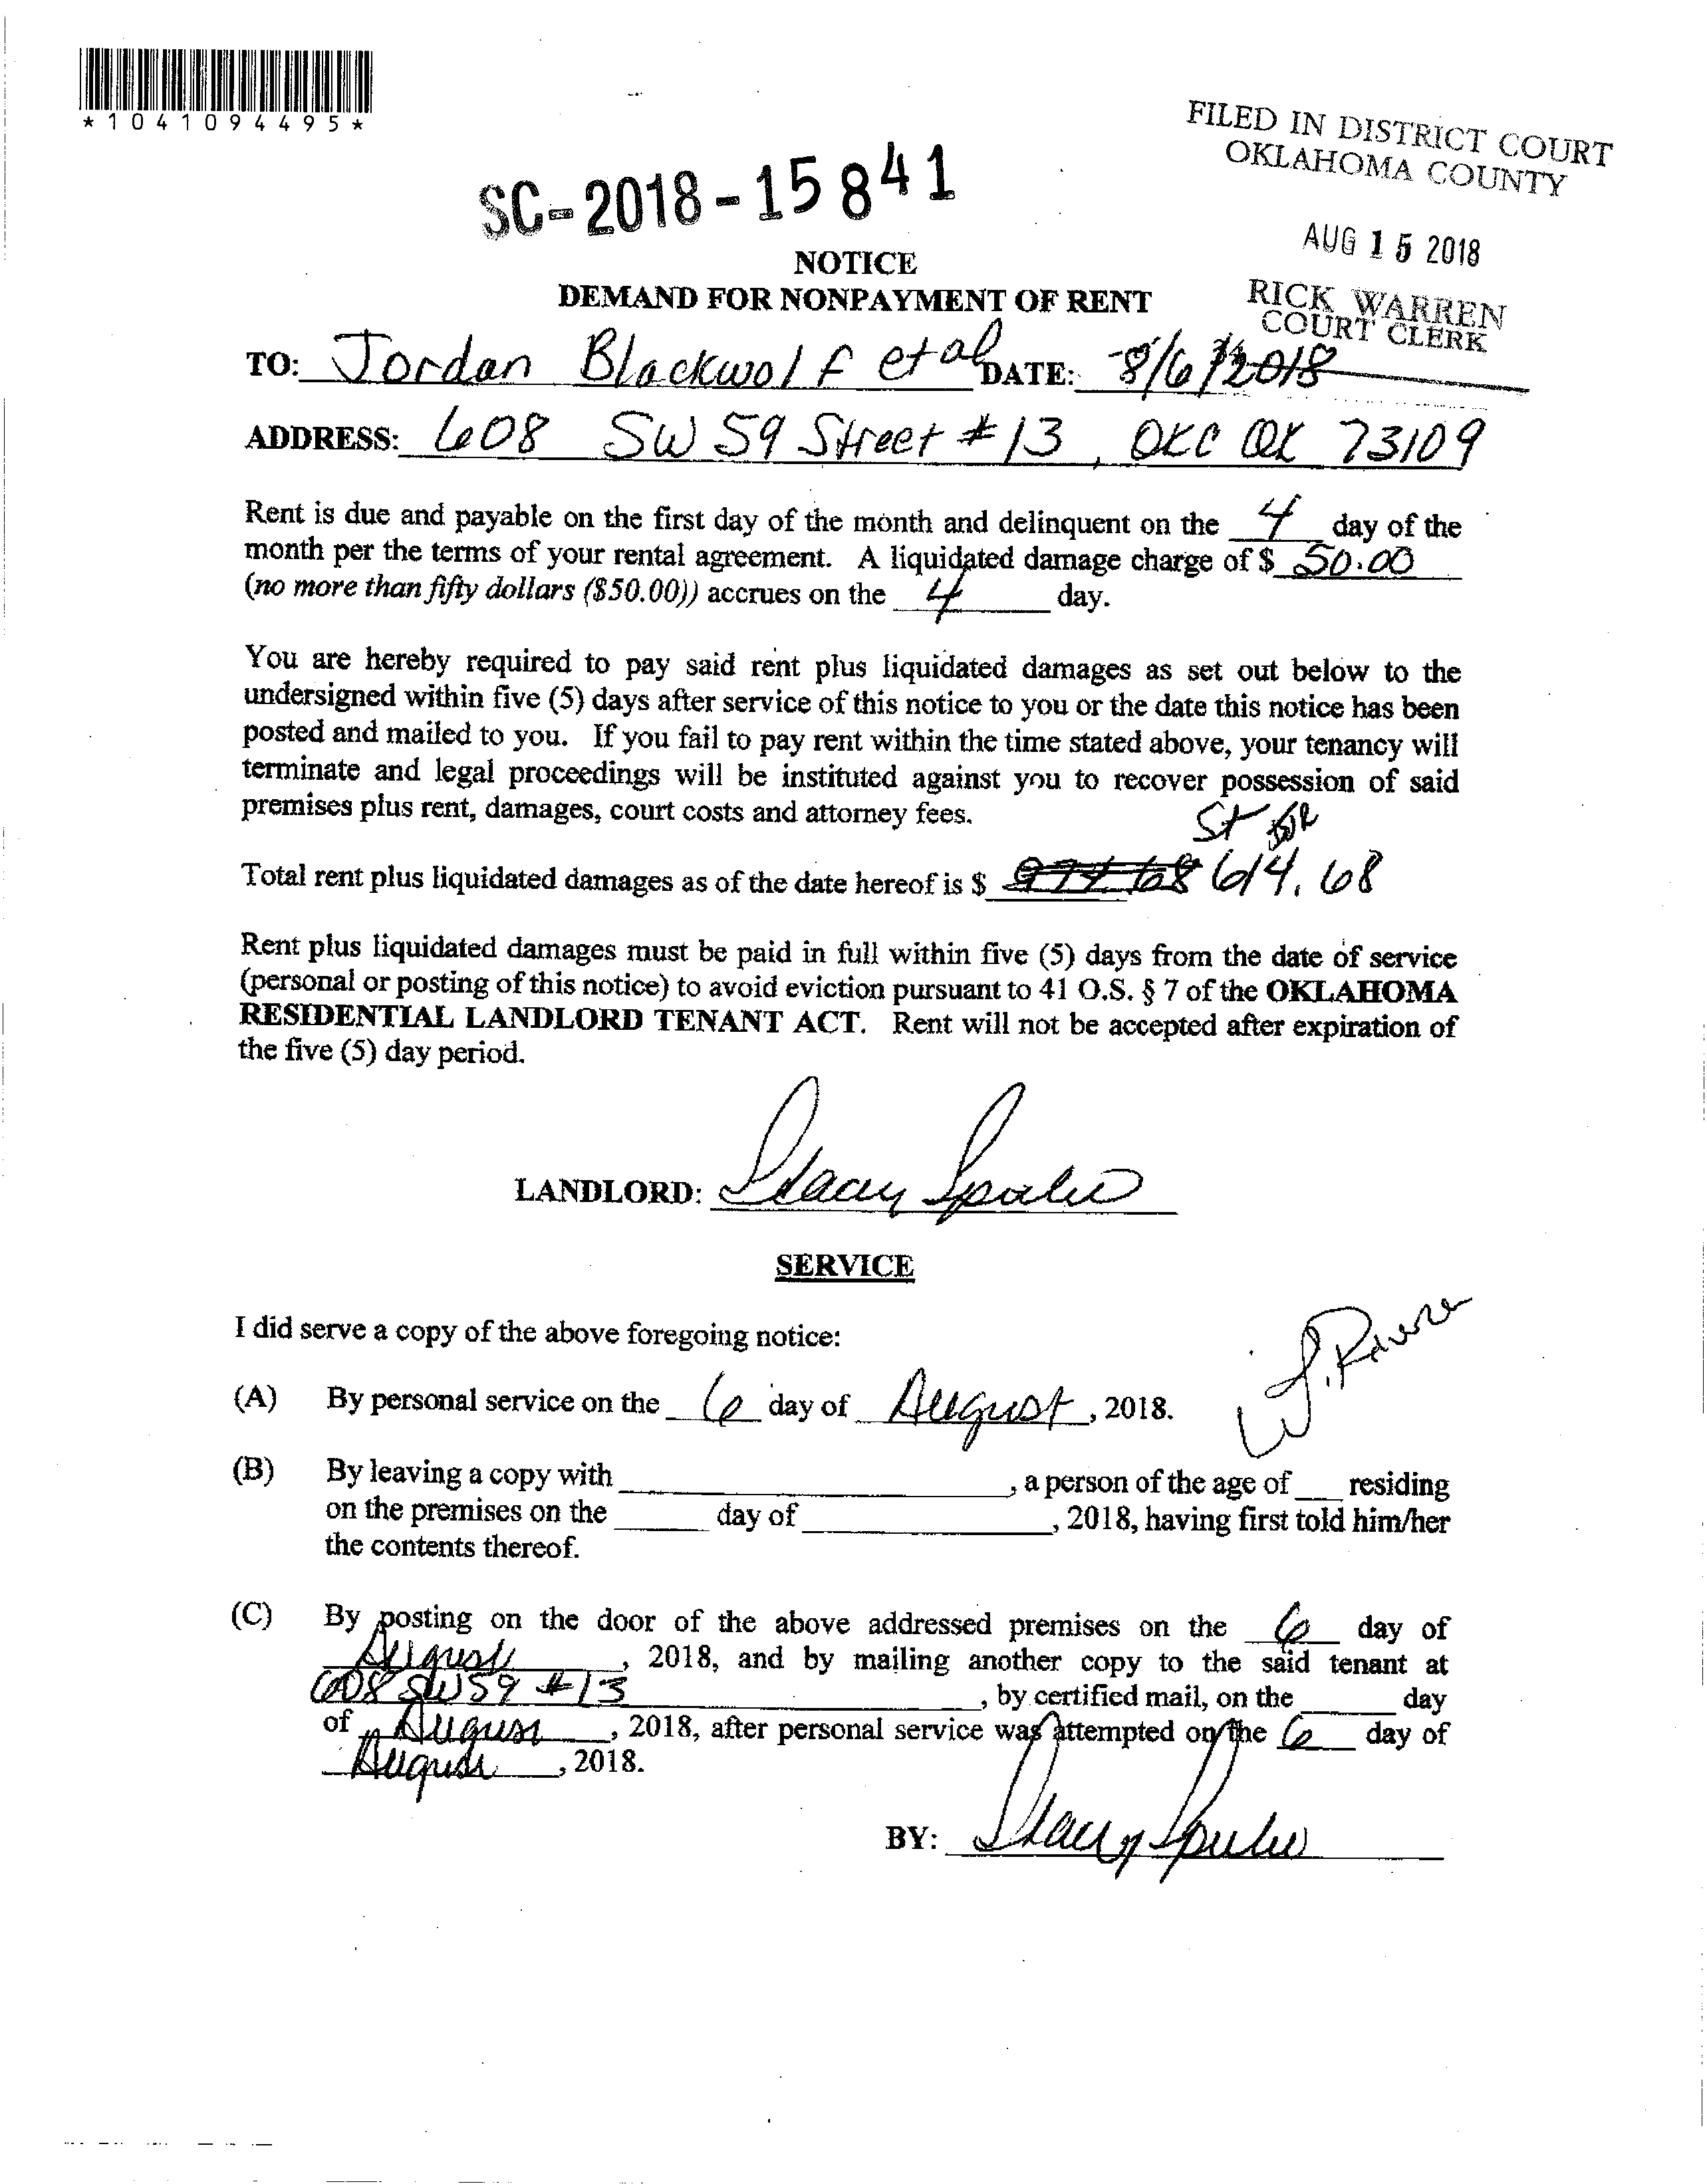 *1041094495*
FILED IN DISTRICT COURT
OKLAHOMA COUNTY
SC-2018-15841
AUG 15 2018
NOTICE
DEMAND FOR NONPAYMENT OF RENT
RICK WARREN
COURT CLERK
TO: Jordan Blackwolf et al DATE: 8/6/2018
ADDRESS: 608 SW 59 Street #13, OKC OK 73109
Rent is due and payable on the first day of the month and delinquent on the 4 day of the
month per the terms of your rental agreement. A liquidated damage charge of $ 50.00
(no more than fifty dollars ($50.00)) accrues on the 4 day.
You are hereby required to pay said rent plus liquidated damages as set out below to the
undersigned within five (5) days after service of this notice to you or the date this notice has been
posted and mailed to you. If you fail to pay rent within the time stated above, your tenancy will
terminate and legal proceedings will be instituted against you to recover possession of said
premises plus rent, damages, court costs and attorney fees.
Total rent plus liquidated damages as of the date hereof is $ 974.68 614.68
Rent plus liquidated damages must be paid in full within five (5) days from the date of service
(personal or posting of this notice) to avoid eviction pursuant to 41 O.S. § 7 of the OKLAHOMA
RESIDENTIAL LANDLORD TENANT ACT. Rent will not be accepted after expiration of
the five (5) day period.
LANDLORD: Stacy
SERVICE
I did serve a copy of the above foregoing notice:
(A) By personal service on the 6 day of August, 2018.
(B) By leaving a copy with , a person of the age of residing
on the premises on the day of , 2018, having first told him/her
the contents thereof.
(C) By posting on the door of the above addressed premises on the 6 day of
August, 2018, and by mailing another copy to the said tenant at
608 SW 59 #13, by certified mail, on the day
of August, 2018, after personal service was attempted on the 6 day of
August, 2018.
BY: Stacy